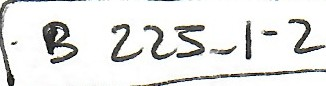 B 225-1-2